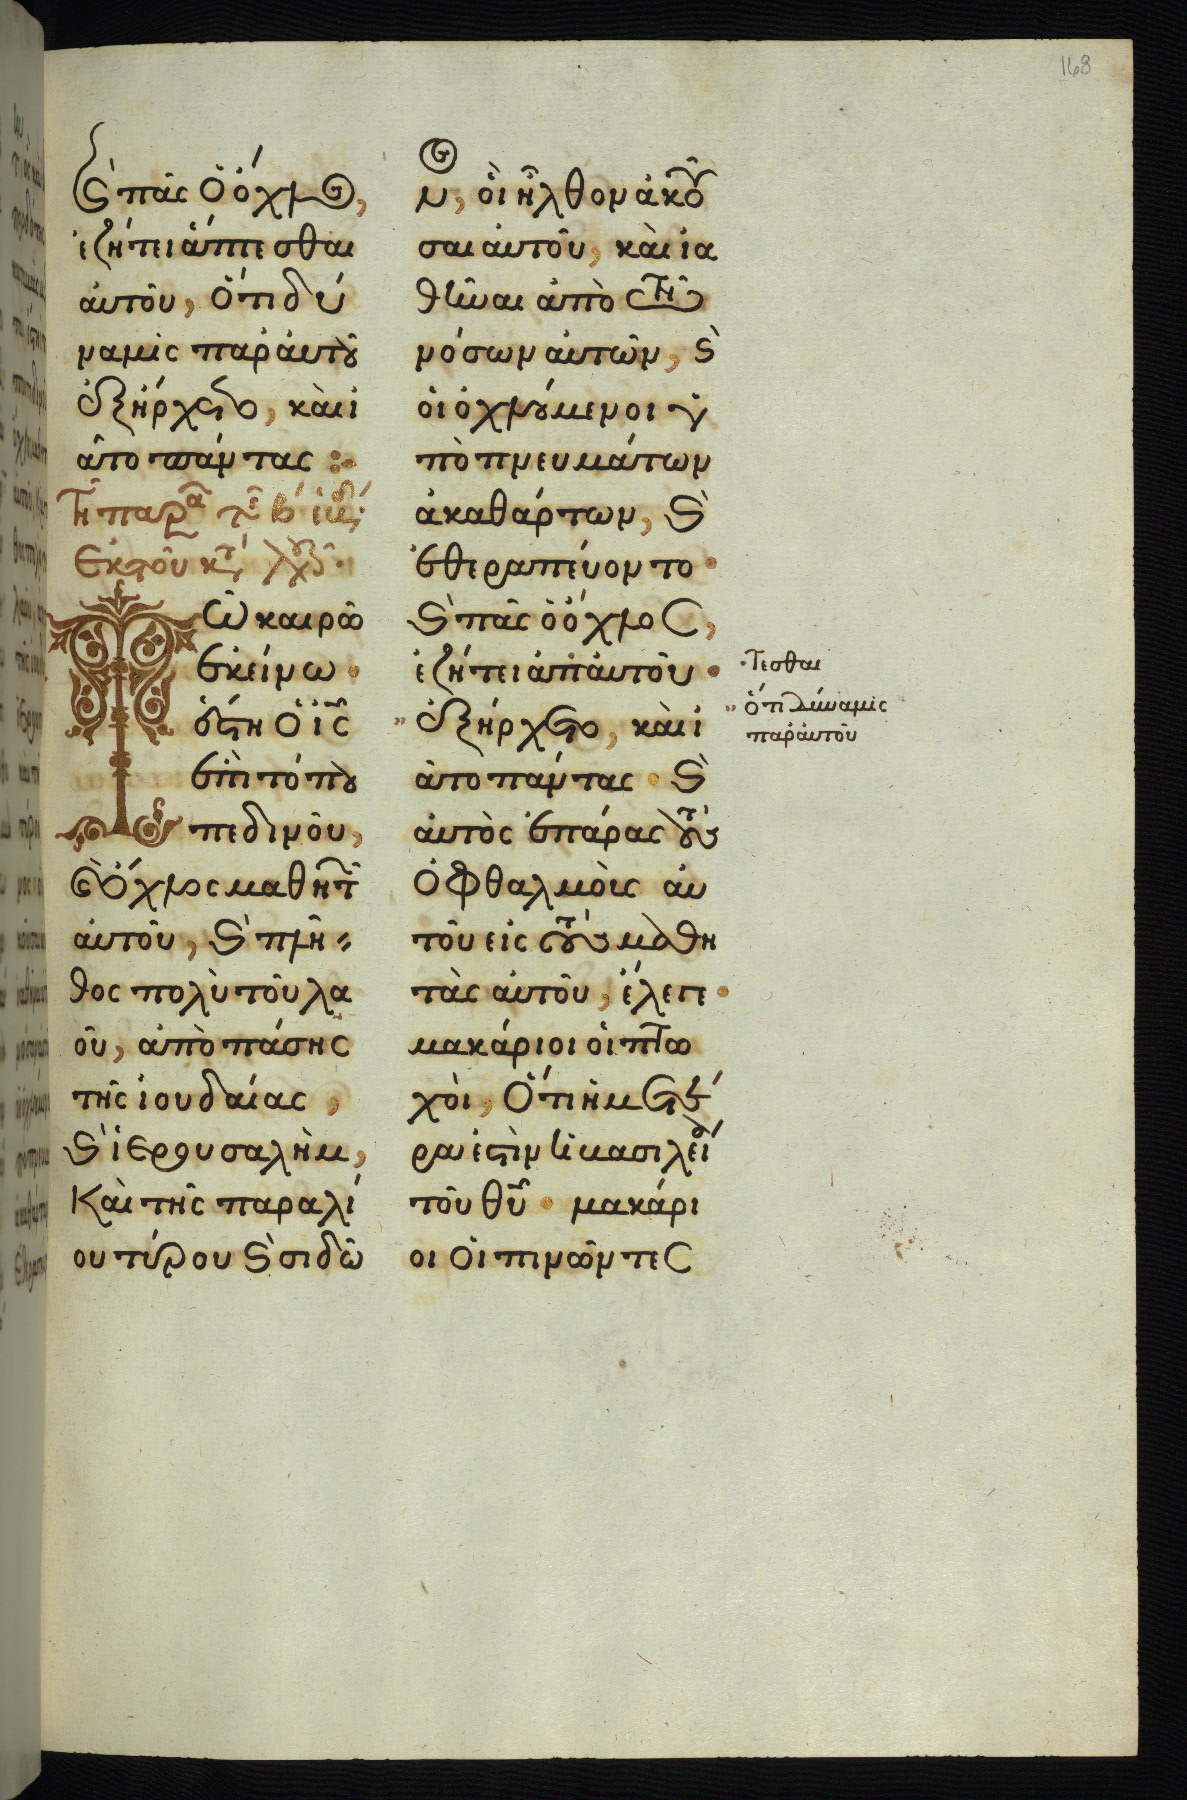 168
Ϛ πᾶς ὁ ὄχλος,
ἐζήτει ἅπτεσθαι
αὐτοῦ, ὅτι δύ
ναμις παρ αὐτοῦ
ἐξήρχετο, καὶ ἰ
ᾶτο πάντας :
Τῇ παρα τῆς β ἑβδ
Ἐκ τοῦ κτ λουκ
ῶ καιρῶ
ἐκείνω ·
ἔστη ὁ ις
ἐπὶ τόπου
πεδινοῦ,
Ϛ ὄχλος μαθητ
αὐτοῦ, Ϛ πλῆ
θος πολὺ τοῦ λα
οῦ, ἀπὸ πάσης
τῆς ἰουδαίας,
Ϛ ἱερουσαλὴμ,
καὶ τῆς παραλί
ου τύρου Ϛ σιδῶ
ν, οἳ ἦλθον ἀκοῦ
σαι αὐτοῦ, καὶ ἰα
θῆναι ἀπὸ τῶν
νόσων αὐτῶν, Ϛ
οἱ ὀχλούμενοι ὑ
πὸ πνευμάτων
ἀκαθάρτων, Ϛ
ἐθεραπεύοντο ·
Ϛ πᾶς ὁ ὄχλος,
ἐζήτει ἅπ αὐτοῦ ·
ἐξήρχετο, καὶ ἰ
ᾶτο πάντας · Ϛ
αὐτὸς ἐπάρας τοὺς
ὀφθαλμοὺς αὐ
τοῦ εἰς τοὺς μαθη
τὰς αὐτοῦ, ἔλεγε ·
μακάριοι οἱ πτω
χοὶ, ὅτι ἡμετέ
ρα ἐστὶν ἡ βασιλεία
τοῦ θυ · μακάρι
οι οἱ πινῶντες
τεσθαι
ὅτι δύναμις
παρ αὐτοῦ